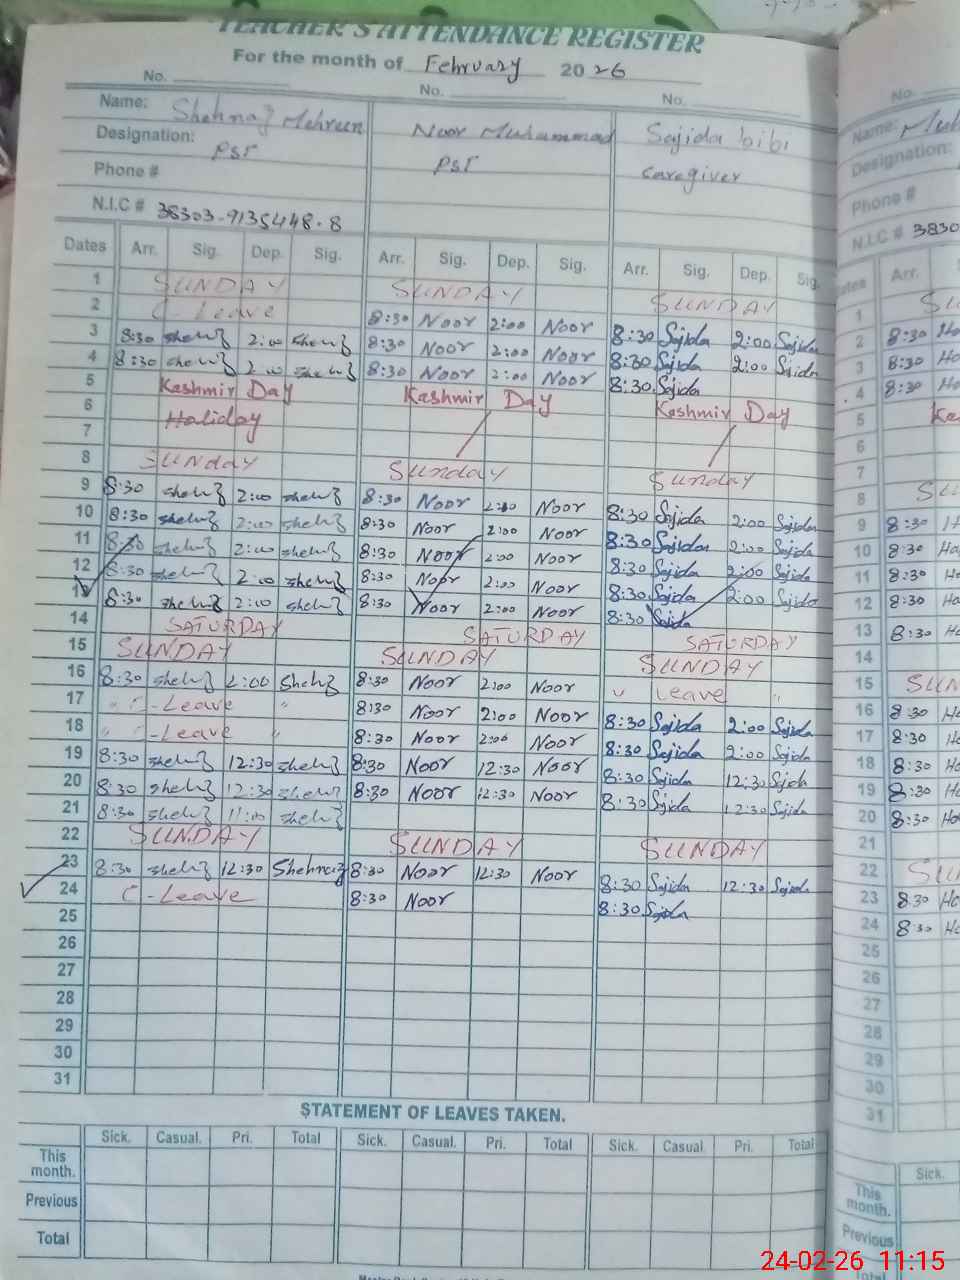 TEACHER'S ATTENDANCE REGISTER
For the month of February 2026
No. No. No.
Name: Shehnaz Mehreen Noor Muhammad Sajida bibi
Designation: PST PST Caregiver
Phone #
N.I.C # 38303-9135448-8
Dates Arr. Sig. Dep. Sig. Arr. Sig. Dep. Sig. Arr. Sig. Dep. Sig.
1 SUNDAY SUNDAY SUNDAY
2 C-Leave 8:30 Noor 2:00 Noor 8:30 Sajida 2:00 Sajida
3 8:30 shehz 2:00 shehz 8:30 Noor 2:00 Noor 8:30 Sajida 2:00 Sajida
4 8:30 shehz 2:00 shehz 8:30 Noor 2:00 Noor 8:30 Sajida
5 Kashmir Day Kashmir Day Kashmir Day
6 Holiday
7
8 SUNday Sunday Sunday
9 8:30 shehz 2:00 shehz 8:30 Noor 2:00 Noor 8:30 Sajida 2:00 Sajida
10 8:30 shehz 2:00 shehz 8:30 Noor 2:00 Noor 8:30 Sajida 2:00 Sajida
11 8:30 shehz 2:00 shehz 8:30 Noor 2:00 Noor 8:30 Sajida 2:00 Sajida
12 8:30 shehz 2:00 shehz 8:30 Noor 2:00 Noor 8:30 Sajida 2:00 Sajida
13 8:30 shehz 2:00 shehz 8:30 Noor 2:00 Noor 8:30 Sajida
14 SATURDAY SATURDAY SATURDAY
15 SUNDAY SUNDAY SUNDAY
16 8:30 shehz 2:00 Shehz 8:30 Noor 2:00 Noor " Leave "
17 " C-Leave " 8:30 Noor 2:00 Noor 8:30 Sajida 2:00 Sajida
18 " C-Leave " 8:30 Noor 2:00 Noor 8:30 Sajida 2:00 Sajida
19 8:30 shehz 12:30 shehz 8:30 Noor 12:30 Noor 8:30 Sajida 12:30 Sajida
20 8:30 shehz 12:30 shehz 8:30 Noor 12:30 Noor 8:30 Sajida 12:30 Sajida
21 8:30 shehz 11:00 shehz
22 SUNDAY SUNDAY SUNDAY
23 8:30 shehz 12:30 Shehnaz 8:30 Noor 12:30 Noor 8:30 Sajida 12:30 Sajida
24 C-Leave 8:30 Noor 8:30 Sajida
25
26
27
28
29
30
31
STATEMENT OF LEAVES TAKEN.
Sick. Casual. Pri. Total Sick. Casual. Pri. Total Sick. Casual. Pri. Total
This month.
Previous
Total
No.
Name:
Designation:
Phone #
N.I.C # 3830
Arr.
1
2 8:30
3 8:30
4 8:30
5
6
7
8
9 8:30
10 8:30
11 8:30
12 8:30
13 8:30
14
15
16 8:30
17 8:30
18 8:30
19 8:30
20 8:30
21
22
23 8:30
24 8:30
25
26
27
28
29
30
31
Sick.
This month.
Previous
Total
24-02-26 11:15